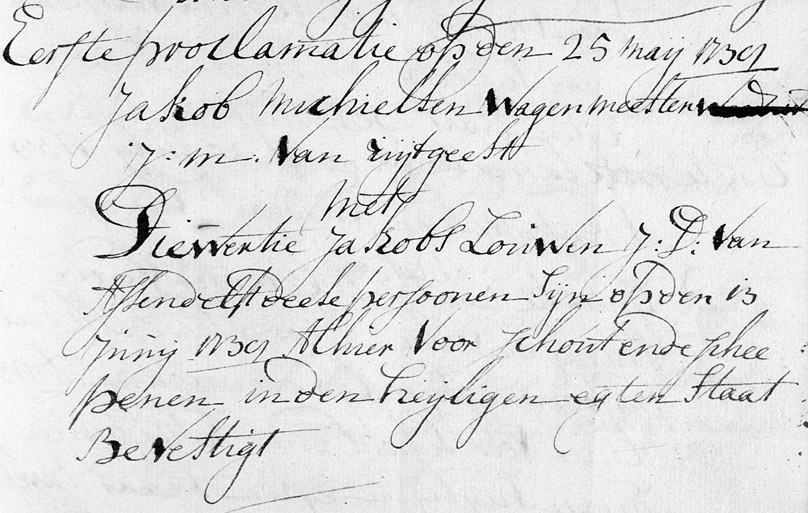 Eerste proclamatie op den 25 maij 1739
Jakob Michielsen Wagenmeester
J: m. Van uijtgeest
met
Diewertie Jakobs Louwen J: D: Van
Assendelft deese persoonen Sijn op den 13
Junij 1739 Alhier Voor schout ende schee
penen in den heijligen egten Staat
BeVestigt